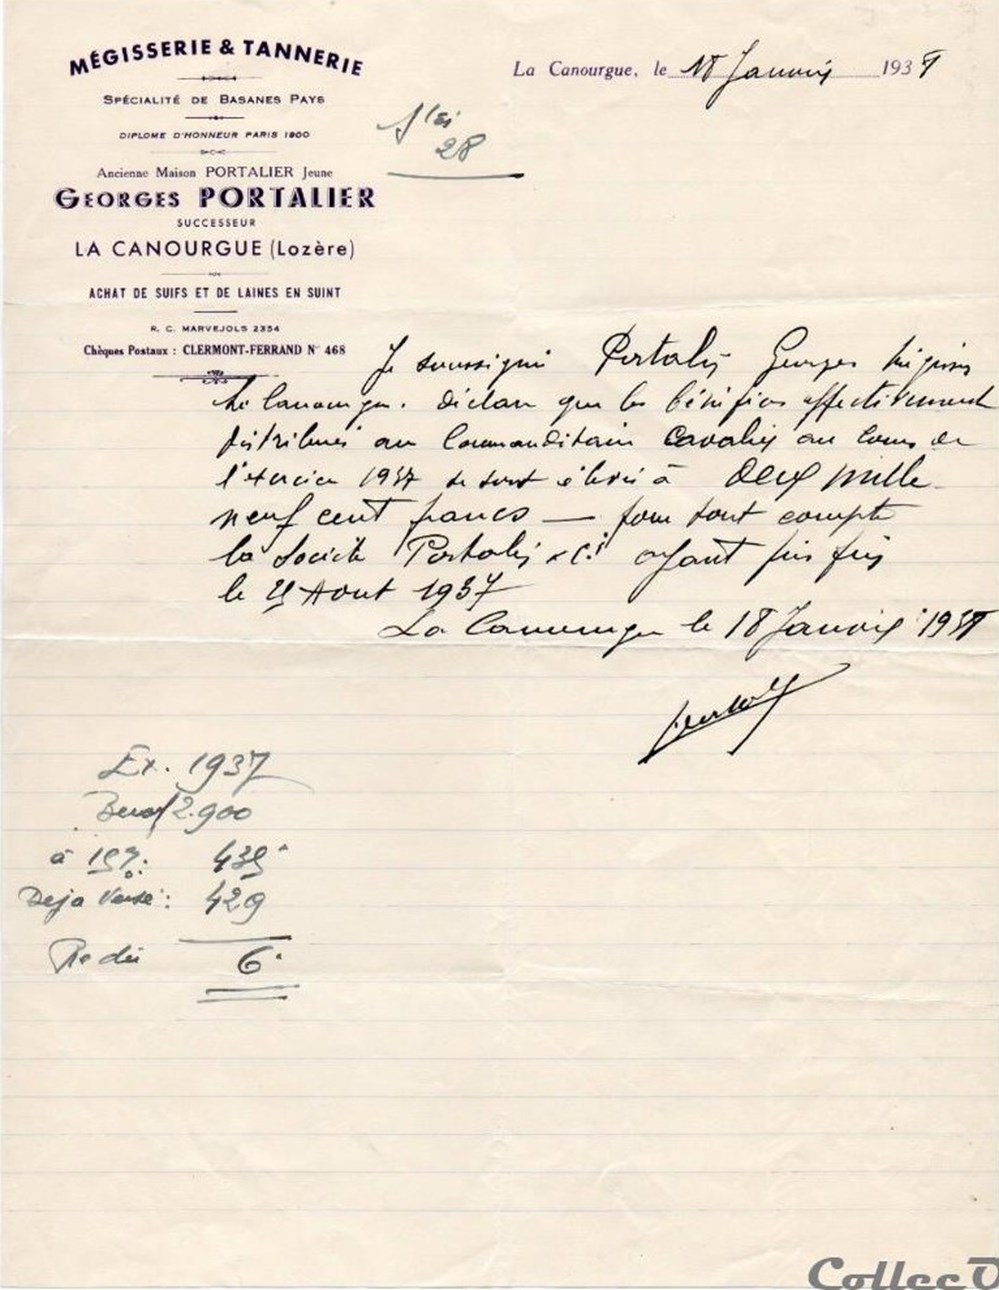 MÉGISSERIE & TANNERIE
SPÉCIALITÉ DE BASANES PAYS
DIPLOME D'HONNEUR PARIS 1900
Ancienne Maison PORTALIER Jeune
GEORGES PORTALIER
SUCCESSEUR
LA CANOURGUE (Lozère)
ACHAT DE SUIFS ET DE LAINES EN SUINT
R. C. MARVEJOLS 2354
Chèques Postaux : CLERMONT-FERRAND N° 468
La Canourgue, le 18 Janvier 1938
28
Je soussigné Portalier Georges mégissier
La Canourgue. déclare que les bénéfices effectivement
distribués au Commanditaire Cavalier au cours de
l'exercice 1937 se sont élevés à deux mille
neuf cent francs — pour tout compte
la Société Portalier & Cie ayant pris fin
le 25 Aout 1937
La Canourgue le 18 Janvier 1938
Ex. 1937
Benef 2.900
à 15%: 435
Deja Versé: 429
Redû 6
CollecO